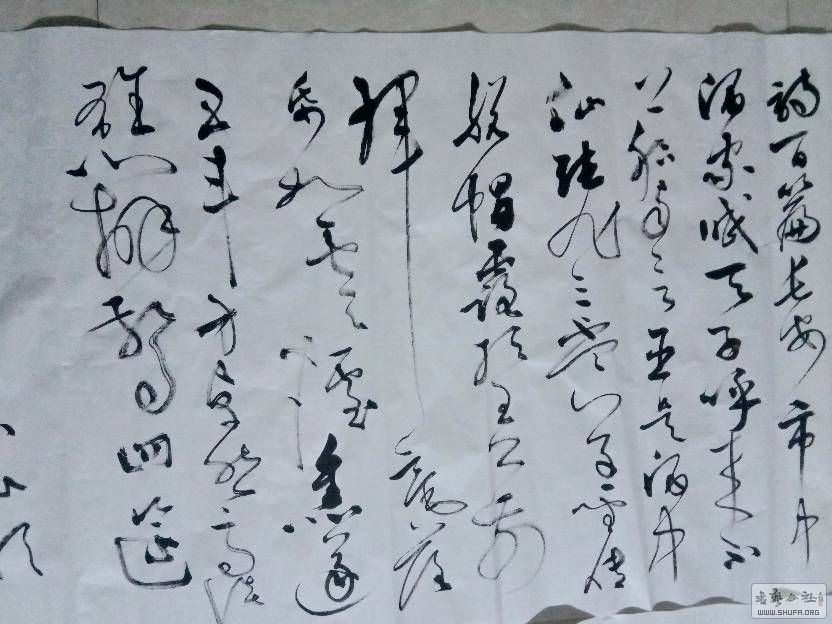 詩百篇長安市中
酒家眠天子呼来不
上船自臣是酒中
仙張旭三杯草聖傳
脱帽露頂王公前
揮毫落
紙如雲煙焦遂
五斗方卓然高談
雄辯驚四筵
书艺公社
WWW.SHUFA.ORG